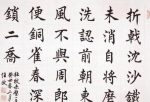 折戟沉沙鐵
未銷自將磨
洗認前朝東
風不與周郎
便銅雀春深
鎖二喬